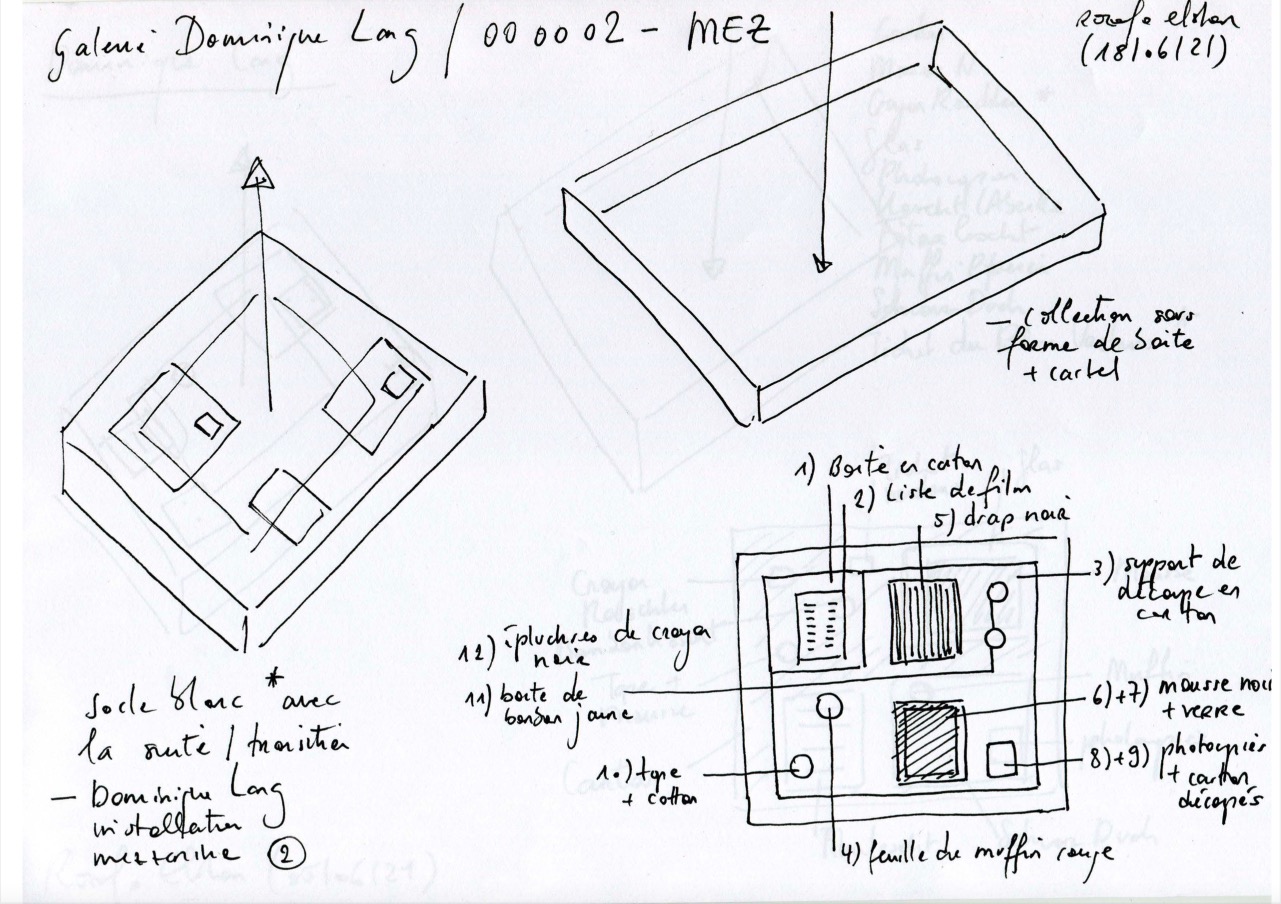 Galerie Dominique Lang / 00 00 02 - MEZ
(18/06/21)
— collection sous
forme de boite
+ cartel
1) Boite en carton
2) Liste de film
5) drap noir
3) support de
découpe en
carton
12) épluchures de crayon
noir
11) boite de
bonbon jaune
6)+7) mousse noir
+ verre
8)+9) photocopiés
+ carton
décopés
10) tape
+ cotton
4) feuille du muffin rouge
socle blanc * avec
la suite / transition
— Dominique Lang
installation
mezzanine ②